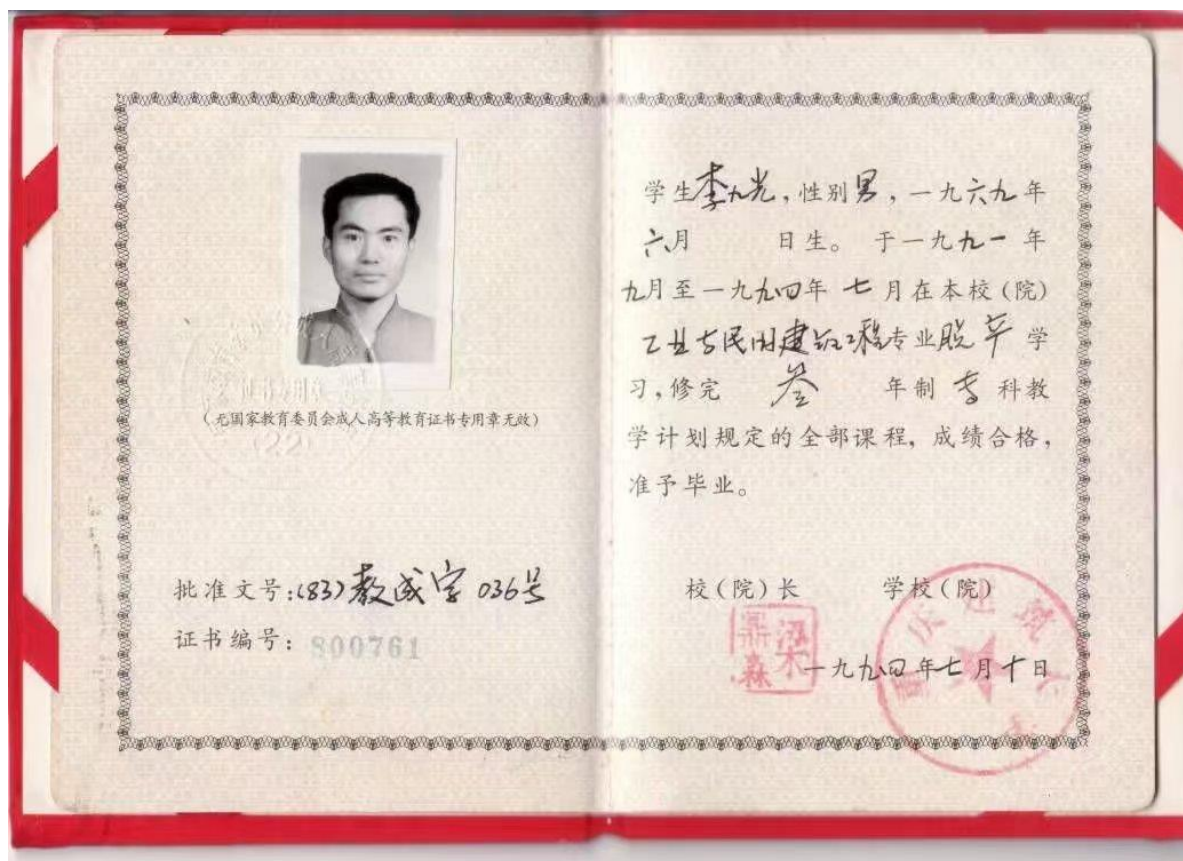 证书专用章
(22)
(无国家教育委员会成人高等教育证书专用章无效)
批准文号:(83)教成字036号
证书编号:800761
学生李九光,性别男,一九六九年
六月 日生。于一九九一年
九月至一九九四年七月在本校(院)
工业与民用建筑工程专业脱产学
习,修完 叁 年制专科教
学计划规定的全部课程,成绩合格,
准予毕业。
校(院)长 学校(院)
一九九四年七月十日
重庆建筑大学